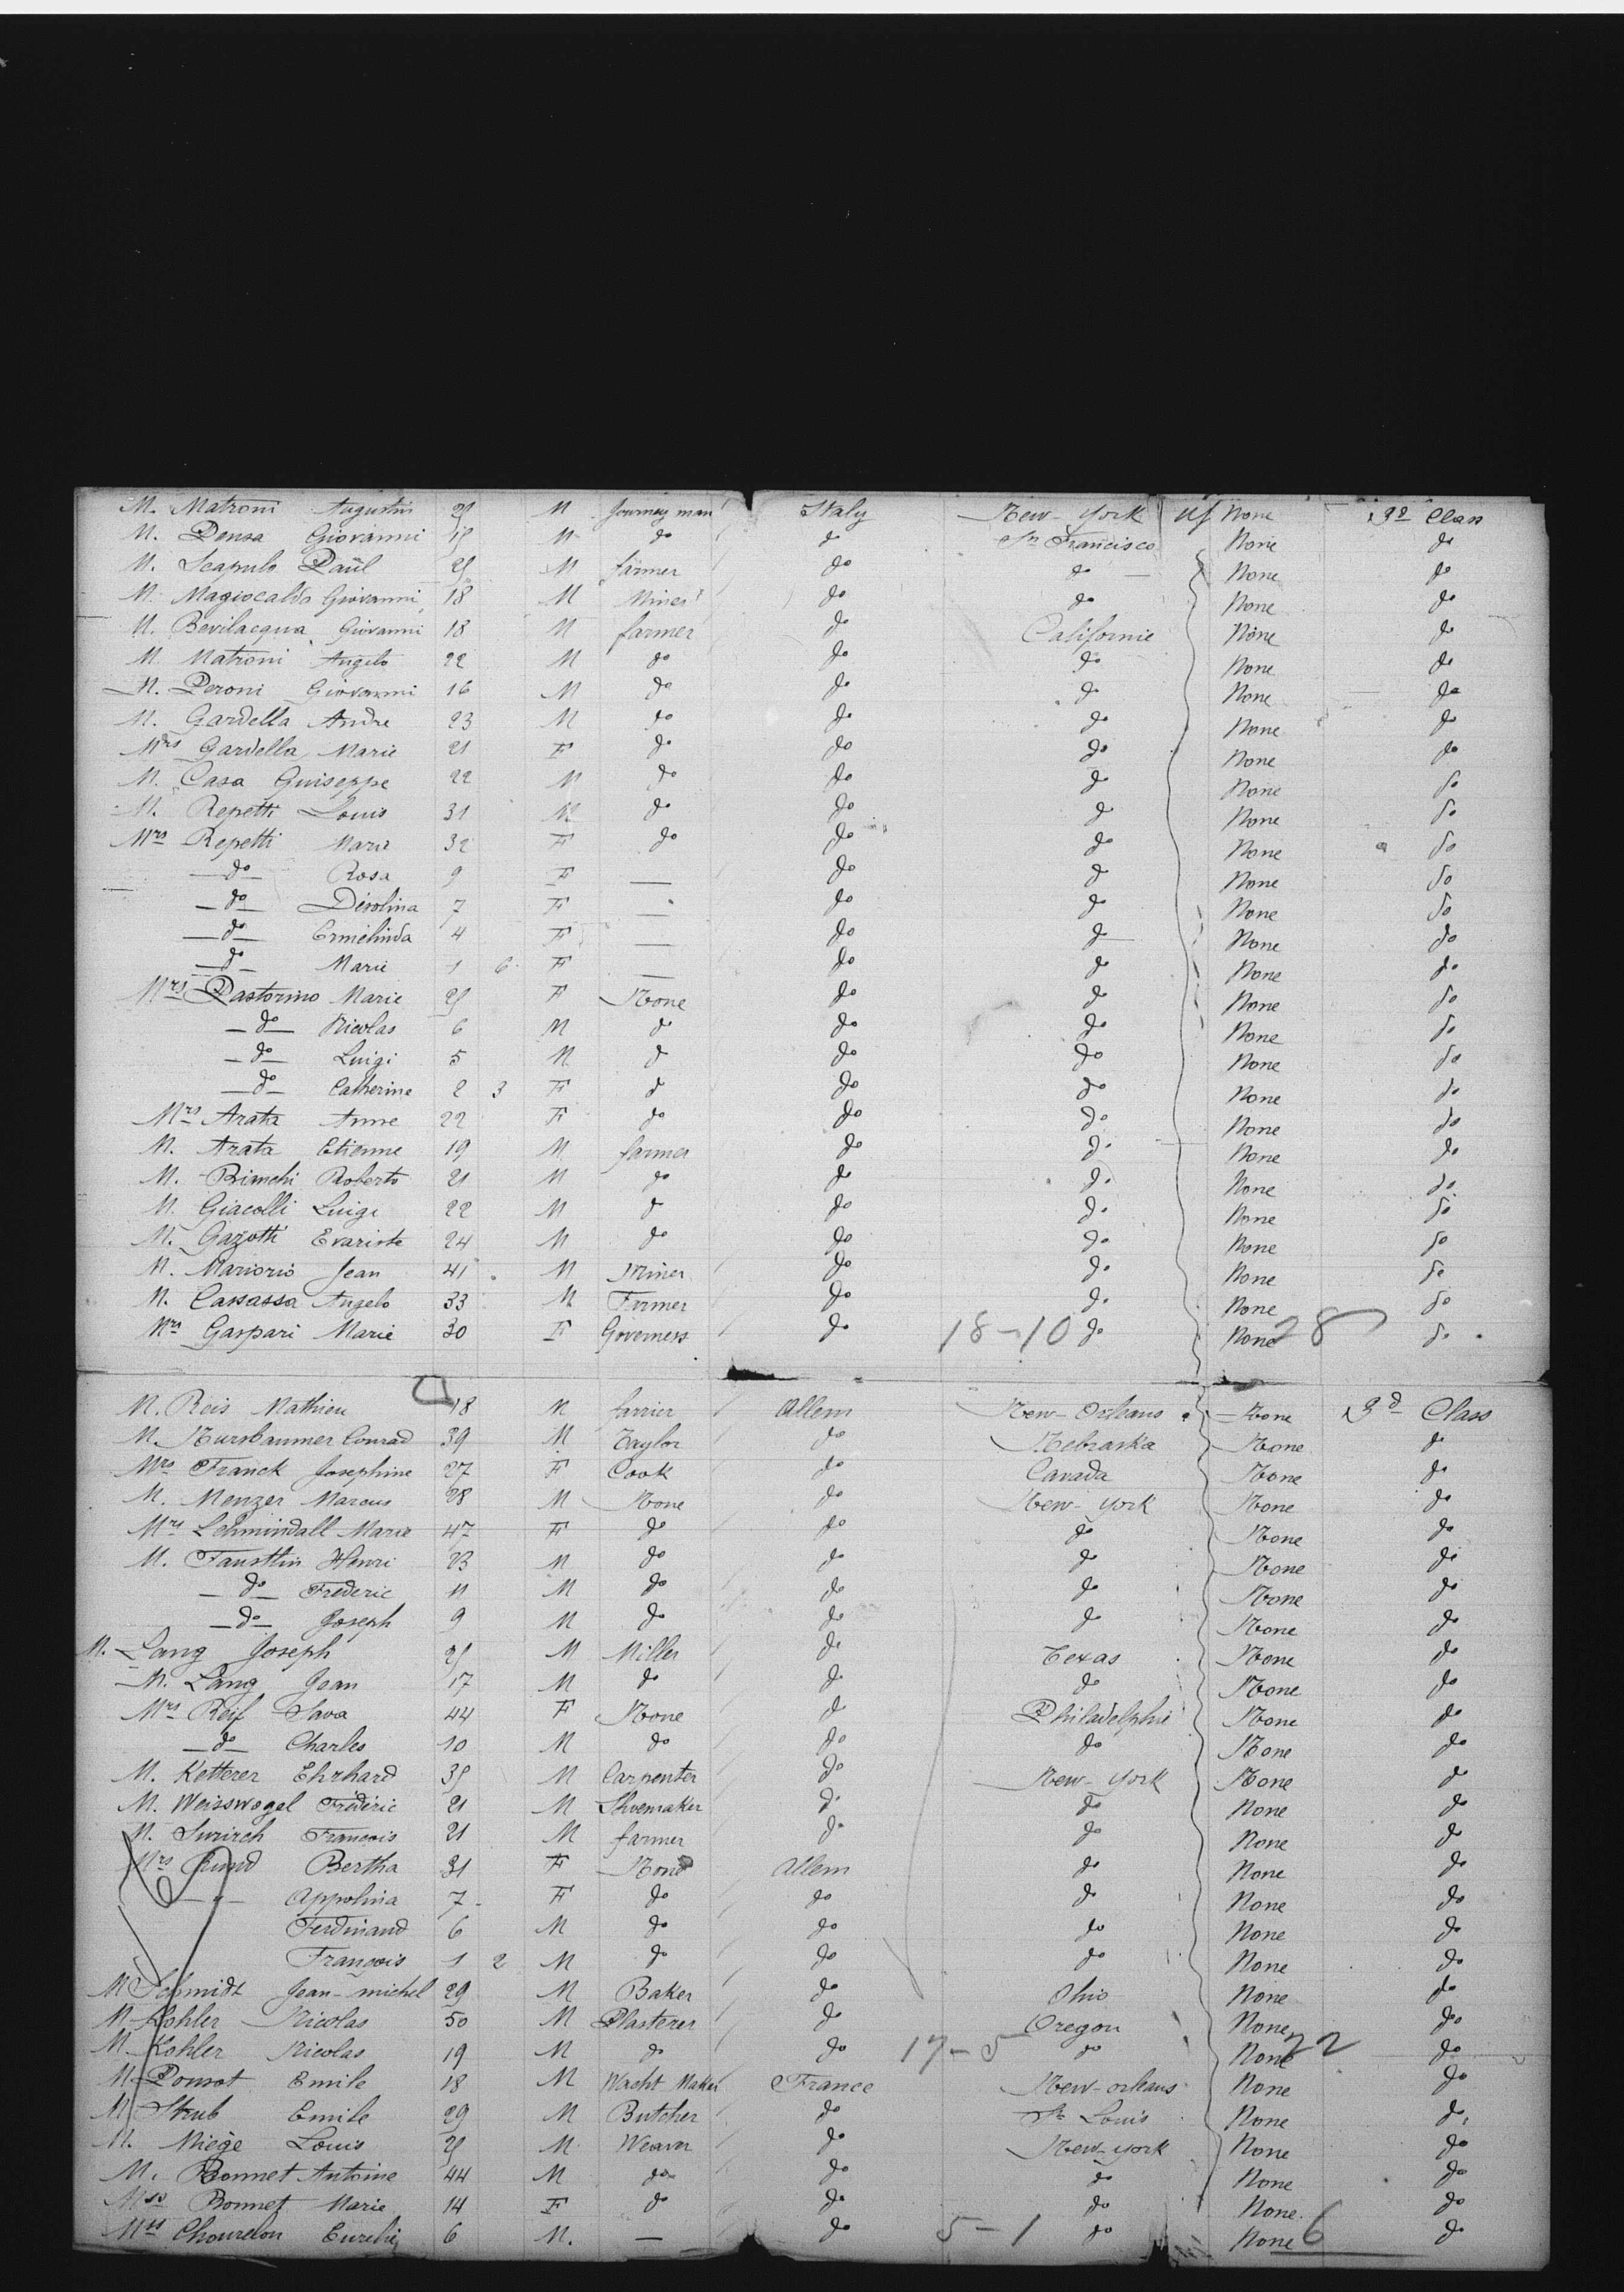 M. Matroni Augustin 25 M Journey man Italy New-York Uf None 3d Class
M. Pensa Giovanni 15 M do do Sn Francisco None do
M. Scapulo Paül 25 M farmer do do None do
M. Magiocaldo Giovanni 18 M Miner do do None do
M. Bevilacqua Giovanni 18 M farmer do Californie None do
M. Matroni Angelo 22 M do do do None do
M. Peroni Giovanni 16 M do do do None do
M. Gardella Andre 23 M do do do None do
Mrs Gardella Marie 21 F do do do None do
M. Casa Guiseppe 22 M do do do None do
M. Repetti Louis 31 M do do do None do
Mrs Repetti Marie 32 F do do do None do
do Rosa 9 F — do do None do
do Désolina 7 F — do do None do
do Ermelinda 4 F — do do None do
do Marie 1 6 F — do do None do
Mrs Pastorino Marie 25 F None do do None do
do Nicolas 6 M do do do None do
do Luigi 5 M do do do None do
do Catherine 2 3 F do do do None do
Mrs Arata Anne 22 F do do do None do
M. Arata Etienne 19 M farmer do do None do
M. Bianchi Roberto 21 M do do do None do
M. Giacolli Luigi 22 M do do do None do
M. Gazotti Evariste 24 M do do do None do
M. Mariorio Jean 41 M Miner do do None do
M. Cassassa Angelo 33 M Farmer do do None do
Mrs Gaspari Marie 30 F Governess do 18-10 do None 28 do
M. Reis Mathieu 18 M farrier Allem New-Orleans None 3d Class
M. Nursbaumer Conrad 39 M Taylor do Nebraska None do
Mrs Franck Josephine 27 F Cook do Canada None do
M. Menzer Marcus 28 M None do New-York None do
Mrs Lehmindall Marie 47 F do do do None do
M. Fausttin Henri 23 M do do do None do
do Frederic 11 M do do do None do
do Joseph 9 M do do do None do
M. Lang Joseph 25 M Miller do Texas None do
M. Lang Jean 17 M do do do None do
Mrs Reif Sava 44 F None do Philadelphie None do
do Charles 10 M do do do None do
M. Ketterer Ehrhard 35 M Carpenter do New-York None do
M. Weisswogel Fréderic 21 M Shoemaker do do None do
M. Swirch Francois 21 M farmer do do None do
Mrs Rund Bertha 31 F None Allem do None do
Appolina 7 F do do do None do
Ferdinand 6 M do do do None do
François 1 2 M do do do None do
M Schmidt Jean-michel 29 M Baker do Ohio None do
M Kohler Nicolas 50 M Plasterer do Oregon None do
M. Kohler Nicolas 19 M do do 17-5 do None 22 do
M. Ponsot Emile 18 M Wacht Maker France New-orleans None do
M Strub Emile 29 M Butcher do St Louis None do
M. Miège Louis 25 M Weaver do New-york None do
M. Bonnet Antoine 44 M do do do None do
Mss Bonnet Marie 14 F do do do None do
Mss Chourelou 6 M. — do 5-1 do None 6 do